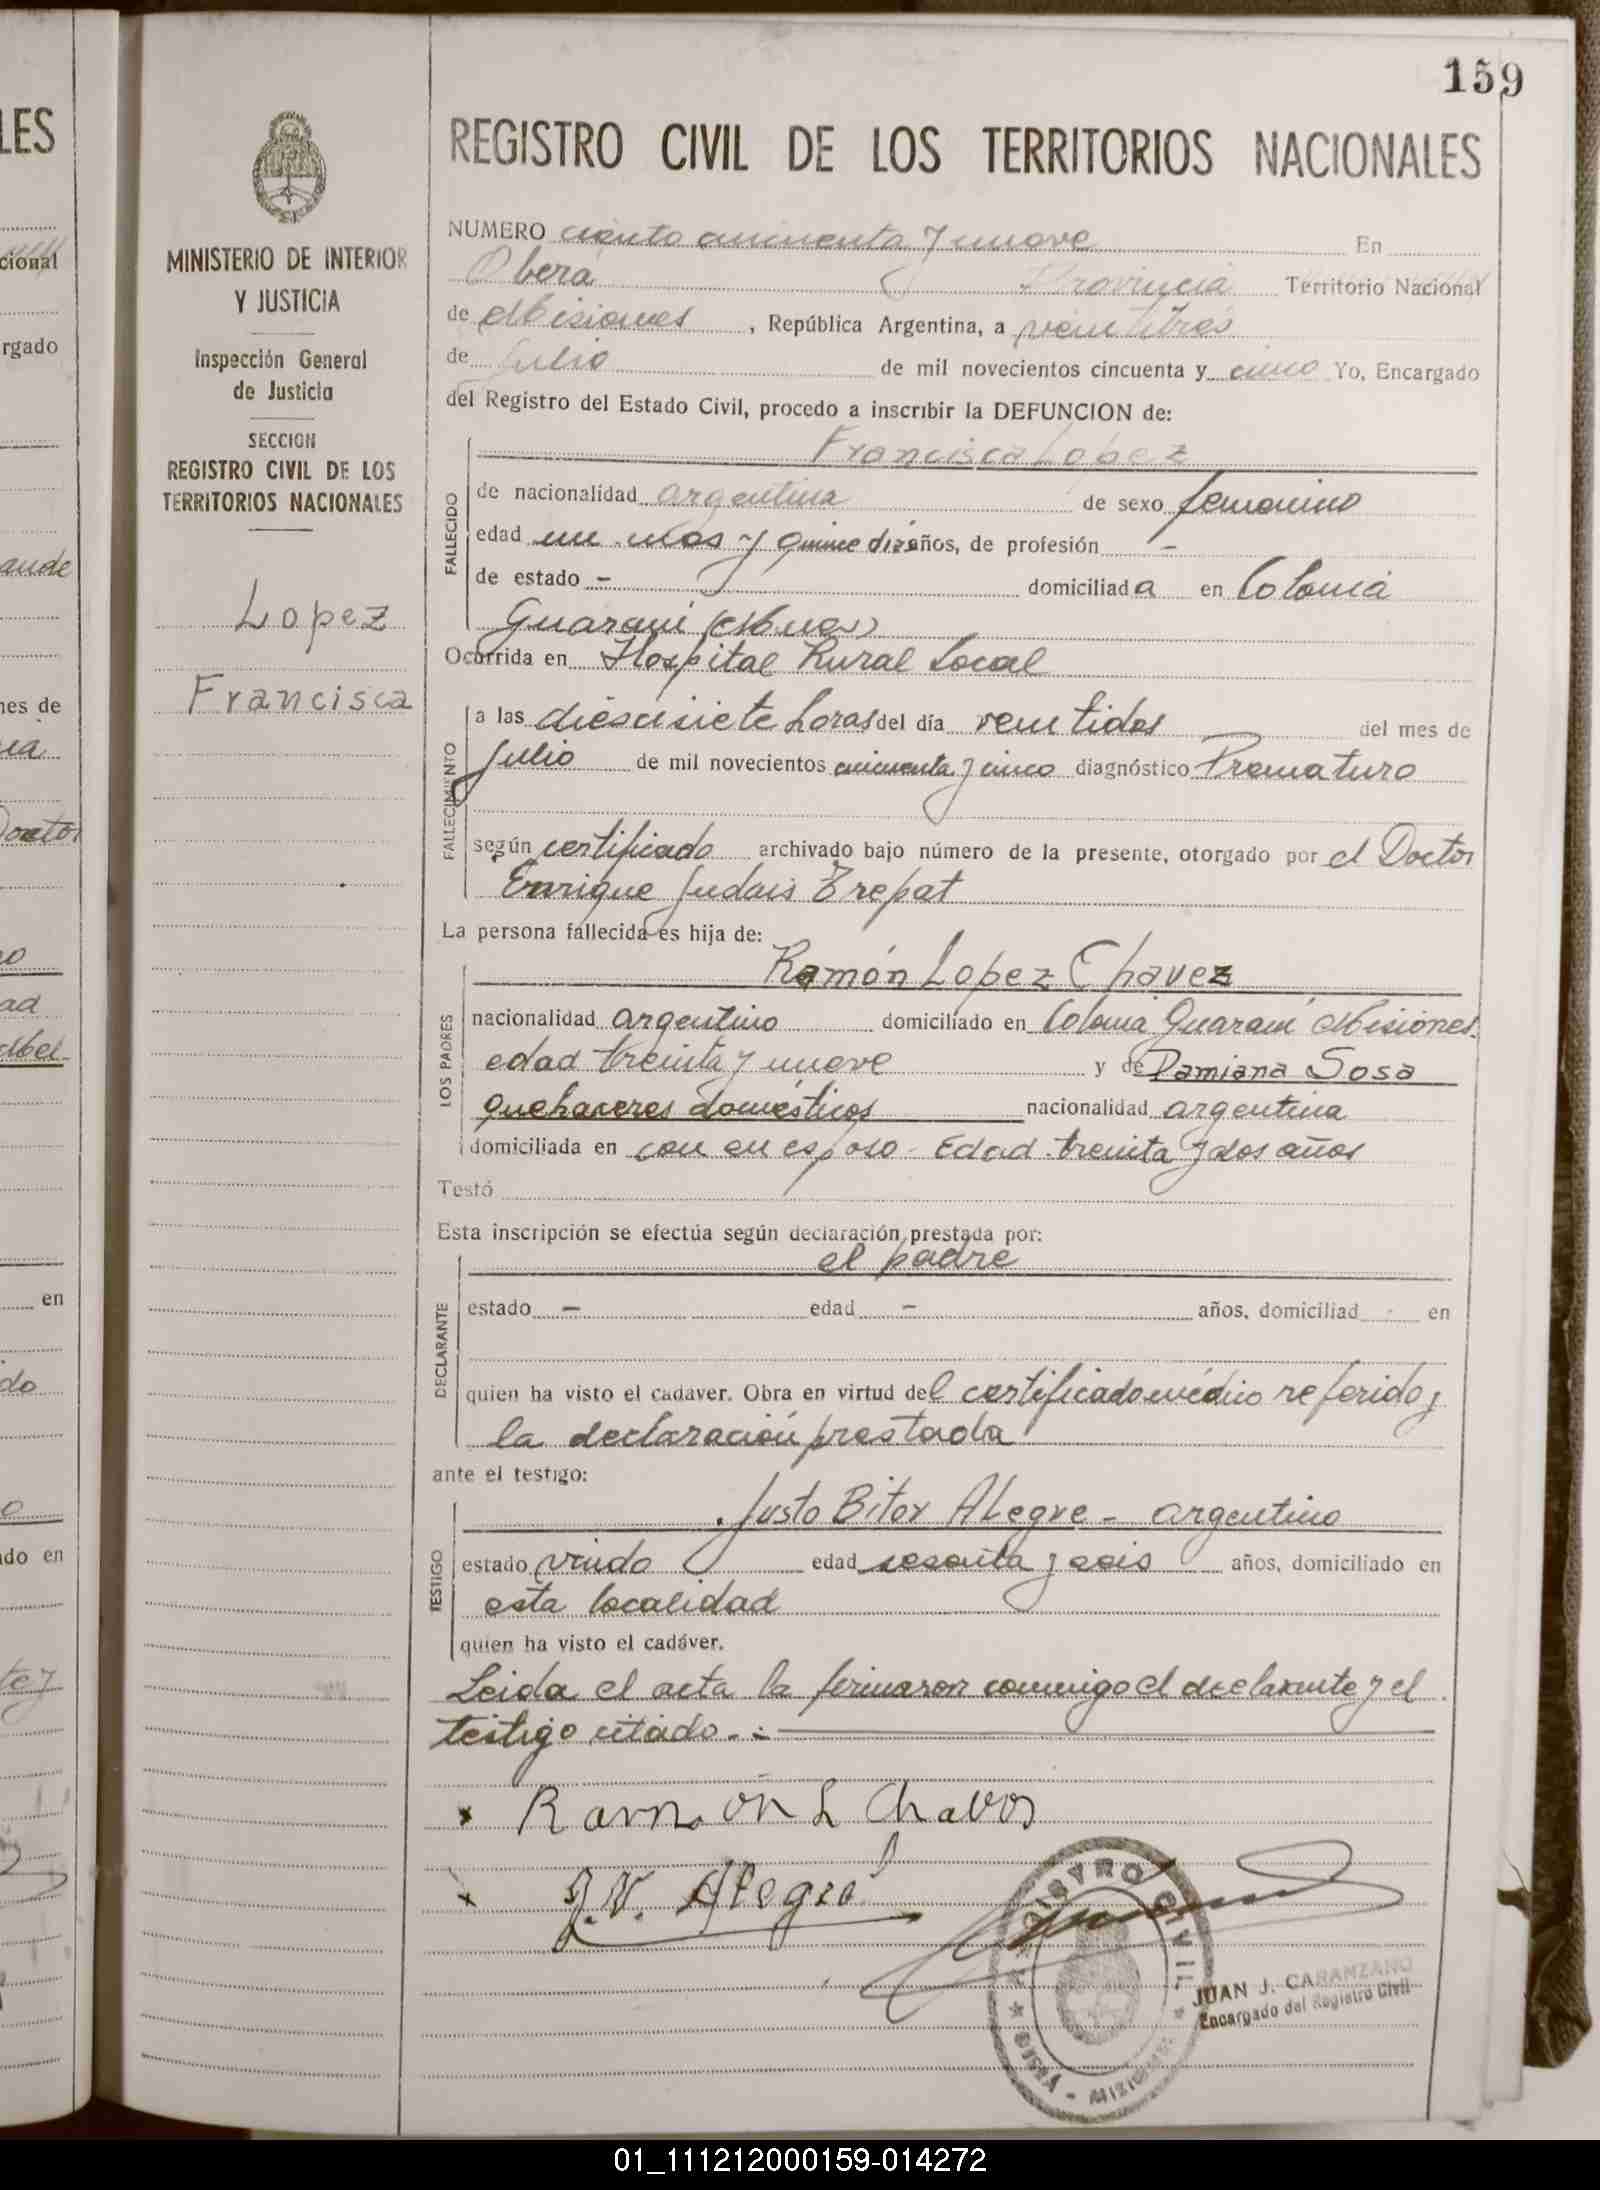 159
REGISTRO CIVIL DE LOS TERRITORIOS NACIONALES
MINISTERIO DE INTERIOR
Y JUSTICIA
Inspección General
de Justicia
SECCION
REGISTRO CIVIL DE LOS
TERRITORIOS NACIONALES
Lopez
Francisca
NUMERO ciento cincuenta y nueve En
Oberá Provincia Territorio Nacional
de Misiones, República Argentina, a veintitres
de Julio de mil novecientos cincuenta y cinco Yo, Encargado
del Registro del Estado Civil, procedo a inscribir la DEFUNCION de:
Francisca Lopez
FALLECIDO
de nacionalidad argentina de sexo femenino
edad un mes y quince dias años, de profesión -
de estado - domiciliada en Colonia
Guarani (Mnes)
Ocurrida en Hospital Rural Local
FALLECIMIENTO
a las diesisiete horas del día veintidos del mes de
Julio de mil novecientos cincuenta y cinco diagnóstico Prematuro
según certificado archivado bajo número de la presente, otorgado por el Doctor
Enrique Judais Trepat
La persona fallecida es hija de:
Ramón Lopez Chavez
LOS PADRES
nacionalidad argentino domiciliado en Colonia Guarani Misiones.
edad treinta y nueve y de Damiana Sosa
quehaceres domésticos nacionalidad argentina
domiciliada en con su esposo - Edad treinta y dos años
Testó
Esta inscripción se efectúa según declaración prestada por:
el padre
DECLARANTE
estado - edad - años, domiciliad - en
quien ha visto el cadáver. Obra en virtud del certificado médico referido y
la declaración prestada
ante el testigo:
Justo Bitor Alegre - argentino
TESTIGO
estado viudo edad sesenta y seis años, domiciliado en
esta localidad
quien ha visto el cadáver.
Leida el acta la firmaron conmigo el declarante y el
testigo citado.-
x Ramón L Chaves
x J.V. Alegré
REGISTRO CIVIL
OBERÁ - MISIONES
JUAN J. CARANZANO
Encargado del Registro Civil
01_111212000159-014272